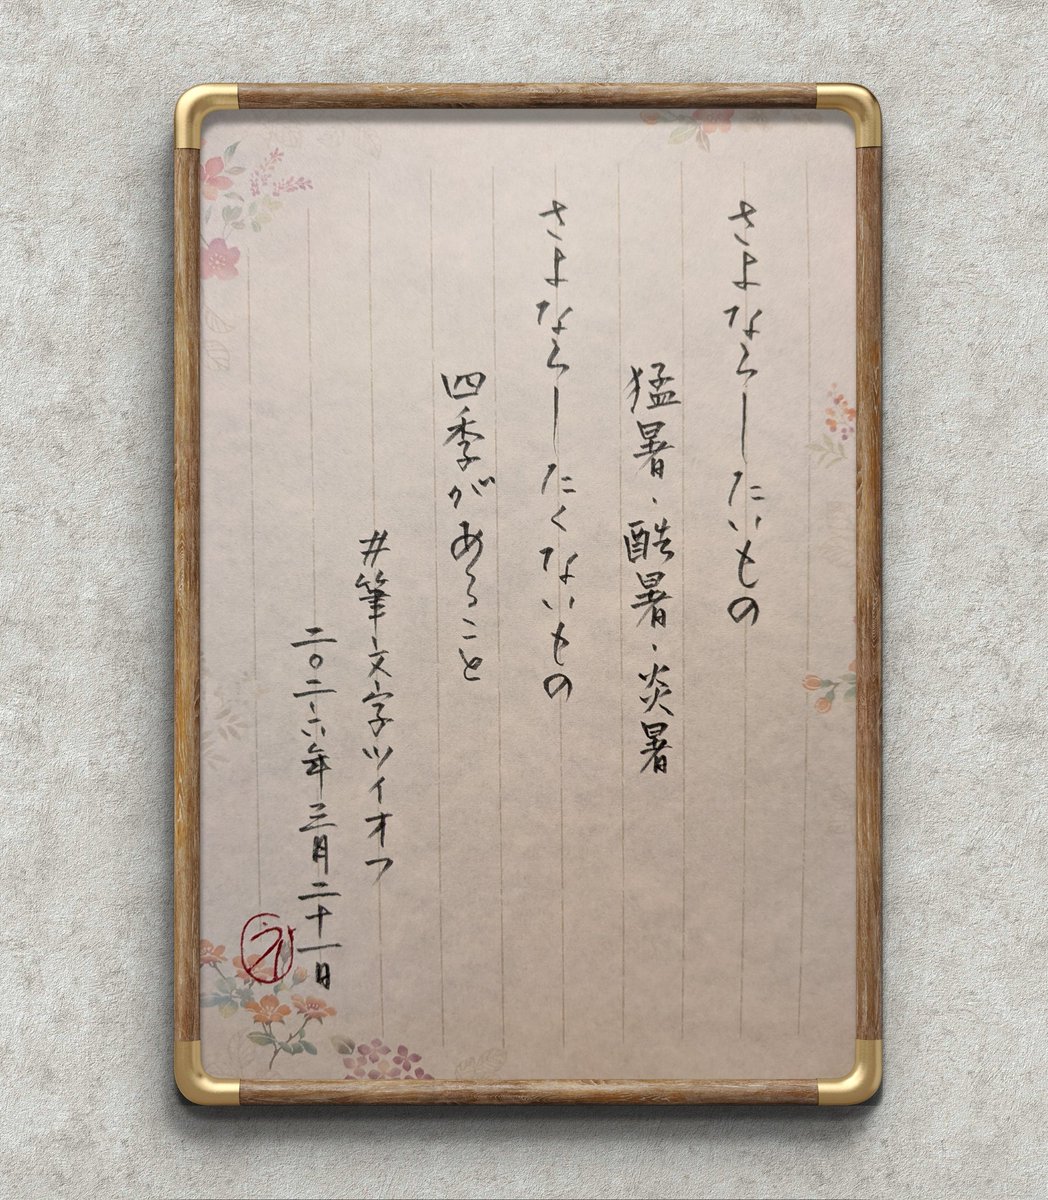 さよならしたいもの
猛暑・酷暑・炎暑
さよならしたくないもの
四季があること
#筆文字ツイオフ
二〇二六年三月二十一日